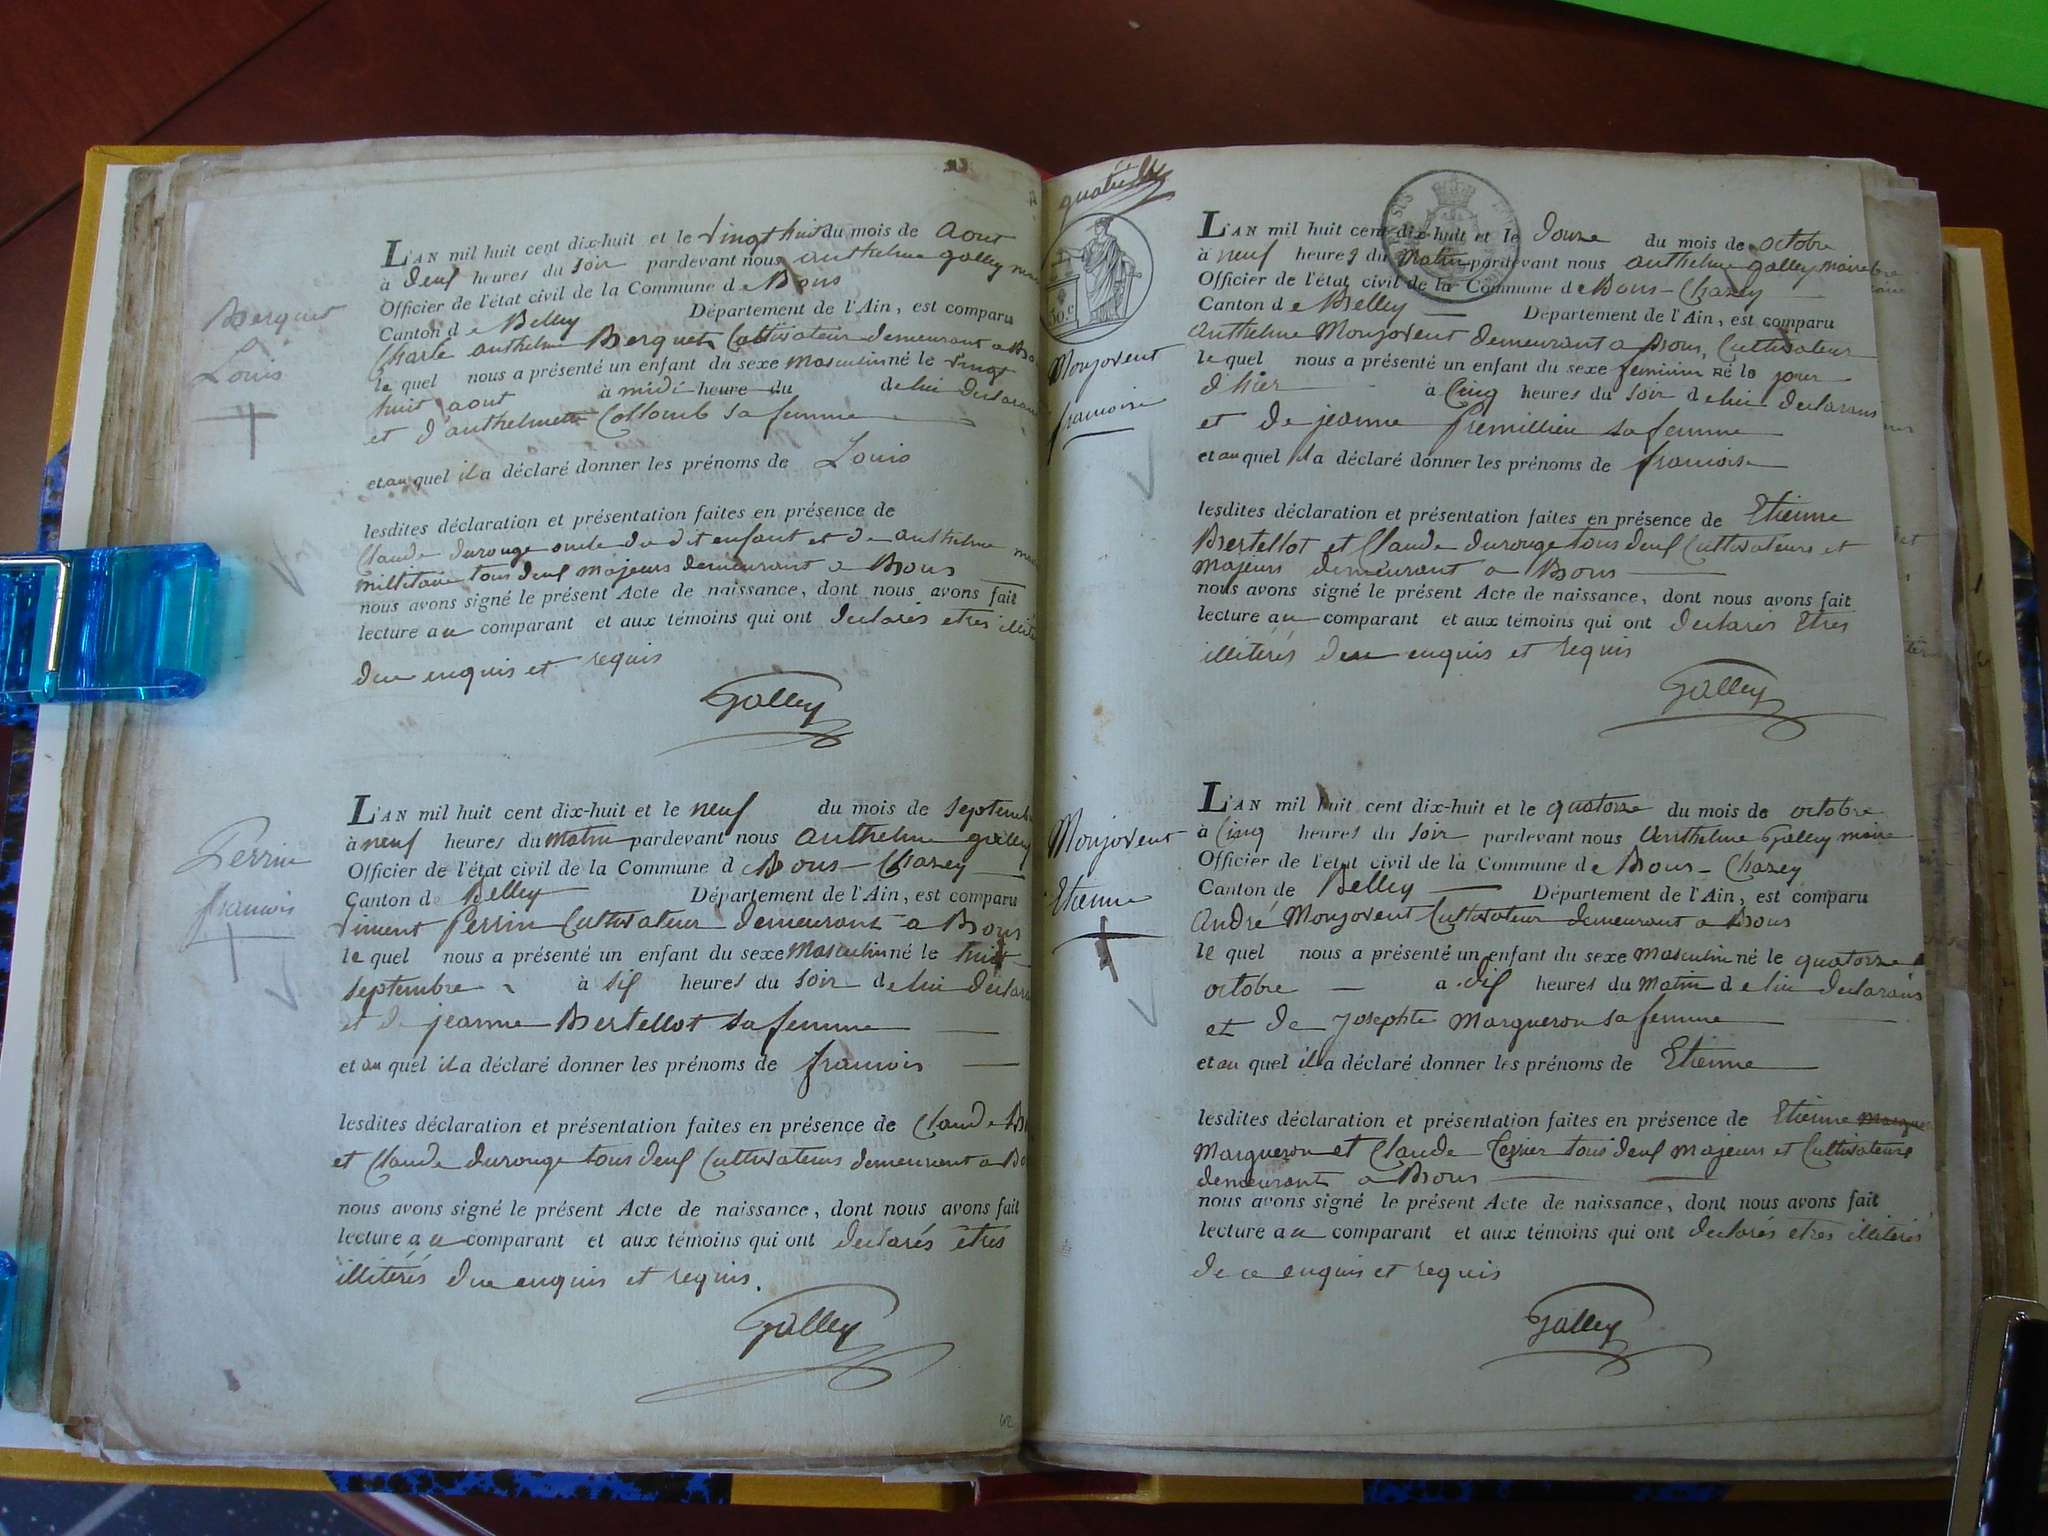 Berquet
Louis
L'AN mil huit cent dix-huit et le vingt huit du mois de aout
à deux heures du soir pardevant nous anthelme galley
Officier de l'état civil de la Commune de Bons
Canton de Belley Département de l'Ain, est comparu
Charle anthelme Berquet Cultivateur demeurant a
le quel nous a présenté un enfant du sexe masculin né le vingt
huit aout à midi heure du de lui declarant
et d'anthelmette Collomb sa femme
et au quel il a déclaré donner les prénoms de Louis
lesdites déclaration et présentation faites en présence de
Claude durouge oncle du dit enfant et de anthelme
millitaire tous deux majeurs demeurant a Bons
nous avons signé le présent Acte de naissance, dont nous avons fait
lecture au comparant et aux témoins qui ont declarés etres
dece enquis et requis
Galley
Perrin
francois
L'AN mil huit cent dix-huit et le neuf du mois de septembre
à neuf heures du matin pardevant nous anthelme galley
Officier de l'état civil de la Commune de Bons - Chazey
Canton de Belley Département de l'Ain, est comparu
vincent perrin Cultivateur demeurant a Bons
le quel nous a présenté un enfant du sexe masculin né le huit
septembre à six heures du soir de lui
et de jeanne Bertellot sa femme
et au quel il a déclaré donner les prénoms de francois
lesdites déclaration et présentation faites en présence de Claude
et Claude durouge tous deux Cultivateurs demeurant a
nous avons signé le présent Acte de naissance, dont nous avons fait
lecture au comparant et aux témoins qui ont declarés etres
illitérés dece enquis et requis.
Galley
42
30.c
Monjovent
francoise
L'AN mil huit cent dix-huit et le douze du mois de octobre
à neuf heures du matin pardevant nous anthelme galley maire
Officier de l'état civil de la Commune de Bons - Chazey
Canton de Belley Département de l'Ain, est comparu
anthelme Monjovent demeurant a Bons, Cultivateur
le quel nous a présenté un enfant du sexe feminin né le jour
d'hier à cinq heures du soir de lui declarans
et de jeanne premillieu sa femme
et au quel il a déclaré donner les prénoms de francoise
lesdites déclaration et présentation faites en présence de Etienne
Bertellot et Claude durouge tous deux Cultivateurs et
majeurs demeurant a Bons
nous avons signé le présent Acte de naissance, dont nous avons fait
lecture au comparant et aux témoins qui ont declarés etres
illitérés dece enquis et requis
Galley
Monjovent
Etienne
L'AN mil huit cent dix-huit et le quatorze du mois de octobre
à cinq heures du soir pardevant nous anthelme Galley maire
Officier de l'état civil de la Commune de Bons - Chazey
Canton de Belley Département de l'Ain, est comparu
André Monjovent Cultivateur demeurant a Bons
le quel nous a présenté un enfant du sexe masculin né le quatorze
octobre a dix heures du matin de lui declarans
et de josephte Margueron sa femme
et au quel il a déclaré donner les prénoms de Etienne
lesdites déclaration et présentation faites en présence de Etienne
Margueron et Claude Terrier tous deux majeurs et Cultivateurs
demeurant a Bons
nous avons signé le présent Acte de naissance, dont nous avons fait
lecture au comparant et aux témoins qui ont declarés etres illitérés
de ce enquis et requis
Galley